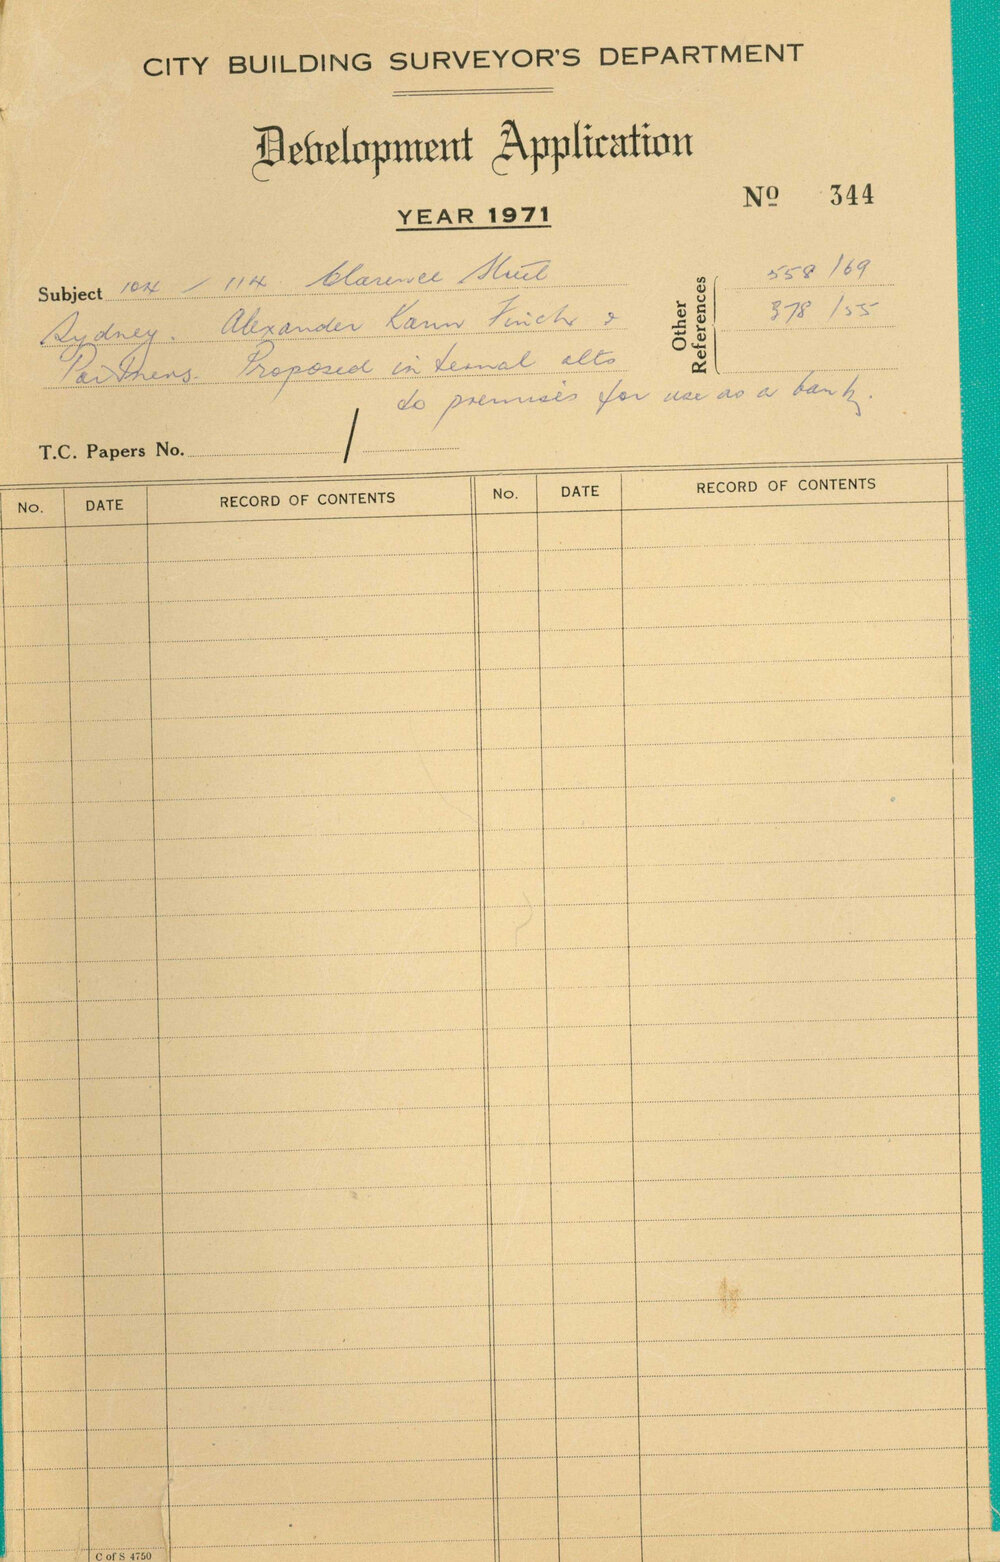 CITY BUILDING SURVEYOR'S DEPARTMENT
Development Application
Nº 344
YEAR 1971
Subject 104 / 114 Clarence Street
Sydney. Alexander Kann Finch &
Partners. Proposed internal alts
to premises for use as a bank.
Other References
558 / 69
378 / 55
T.C. Papers No. /
No. DATE RECORD OF CONTENTS No. DATE RECORD OF CONTENTS
C of S 4750